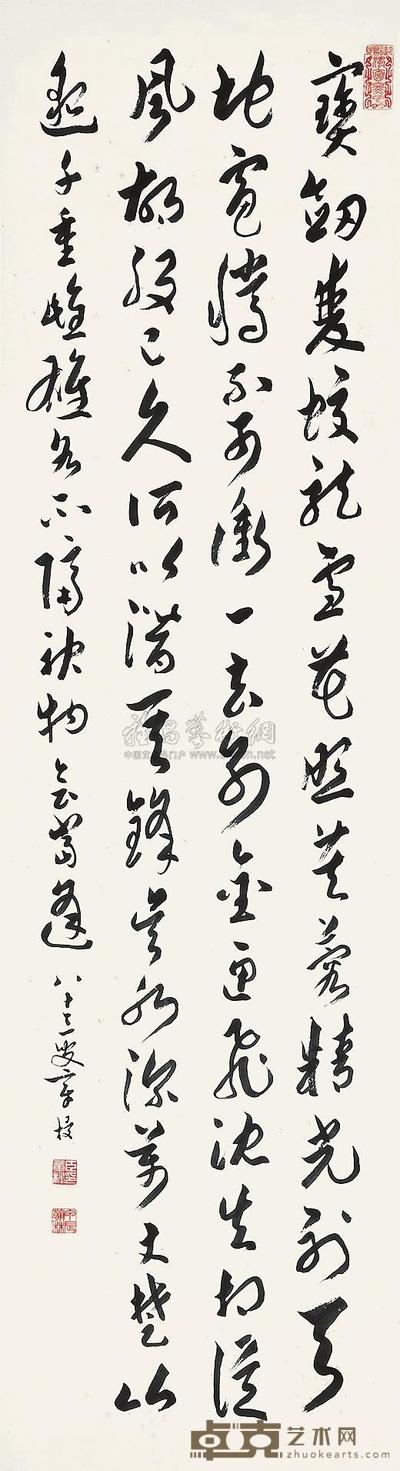 寶劍雙蛟龍雪花照芙蓉精光射天
地電騰不可衝一去別金匣飛沈失相從
風胡歿已久所以潛其鋒吳水深萬丈楚山
邈千重雌雄各不隔神物會當逢
八十三叟章梫
雅昌藝術網
卓克艺术网
zhuokearts.com